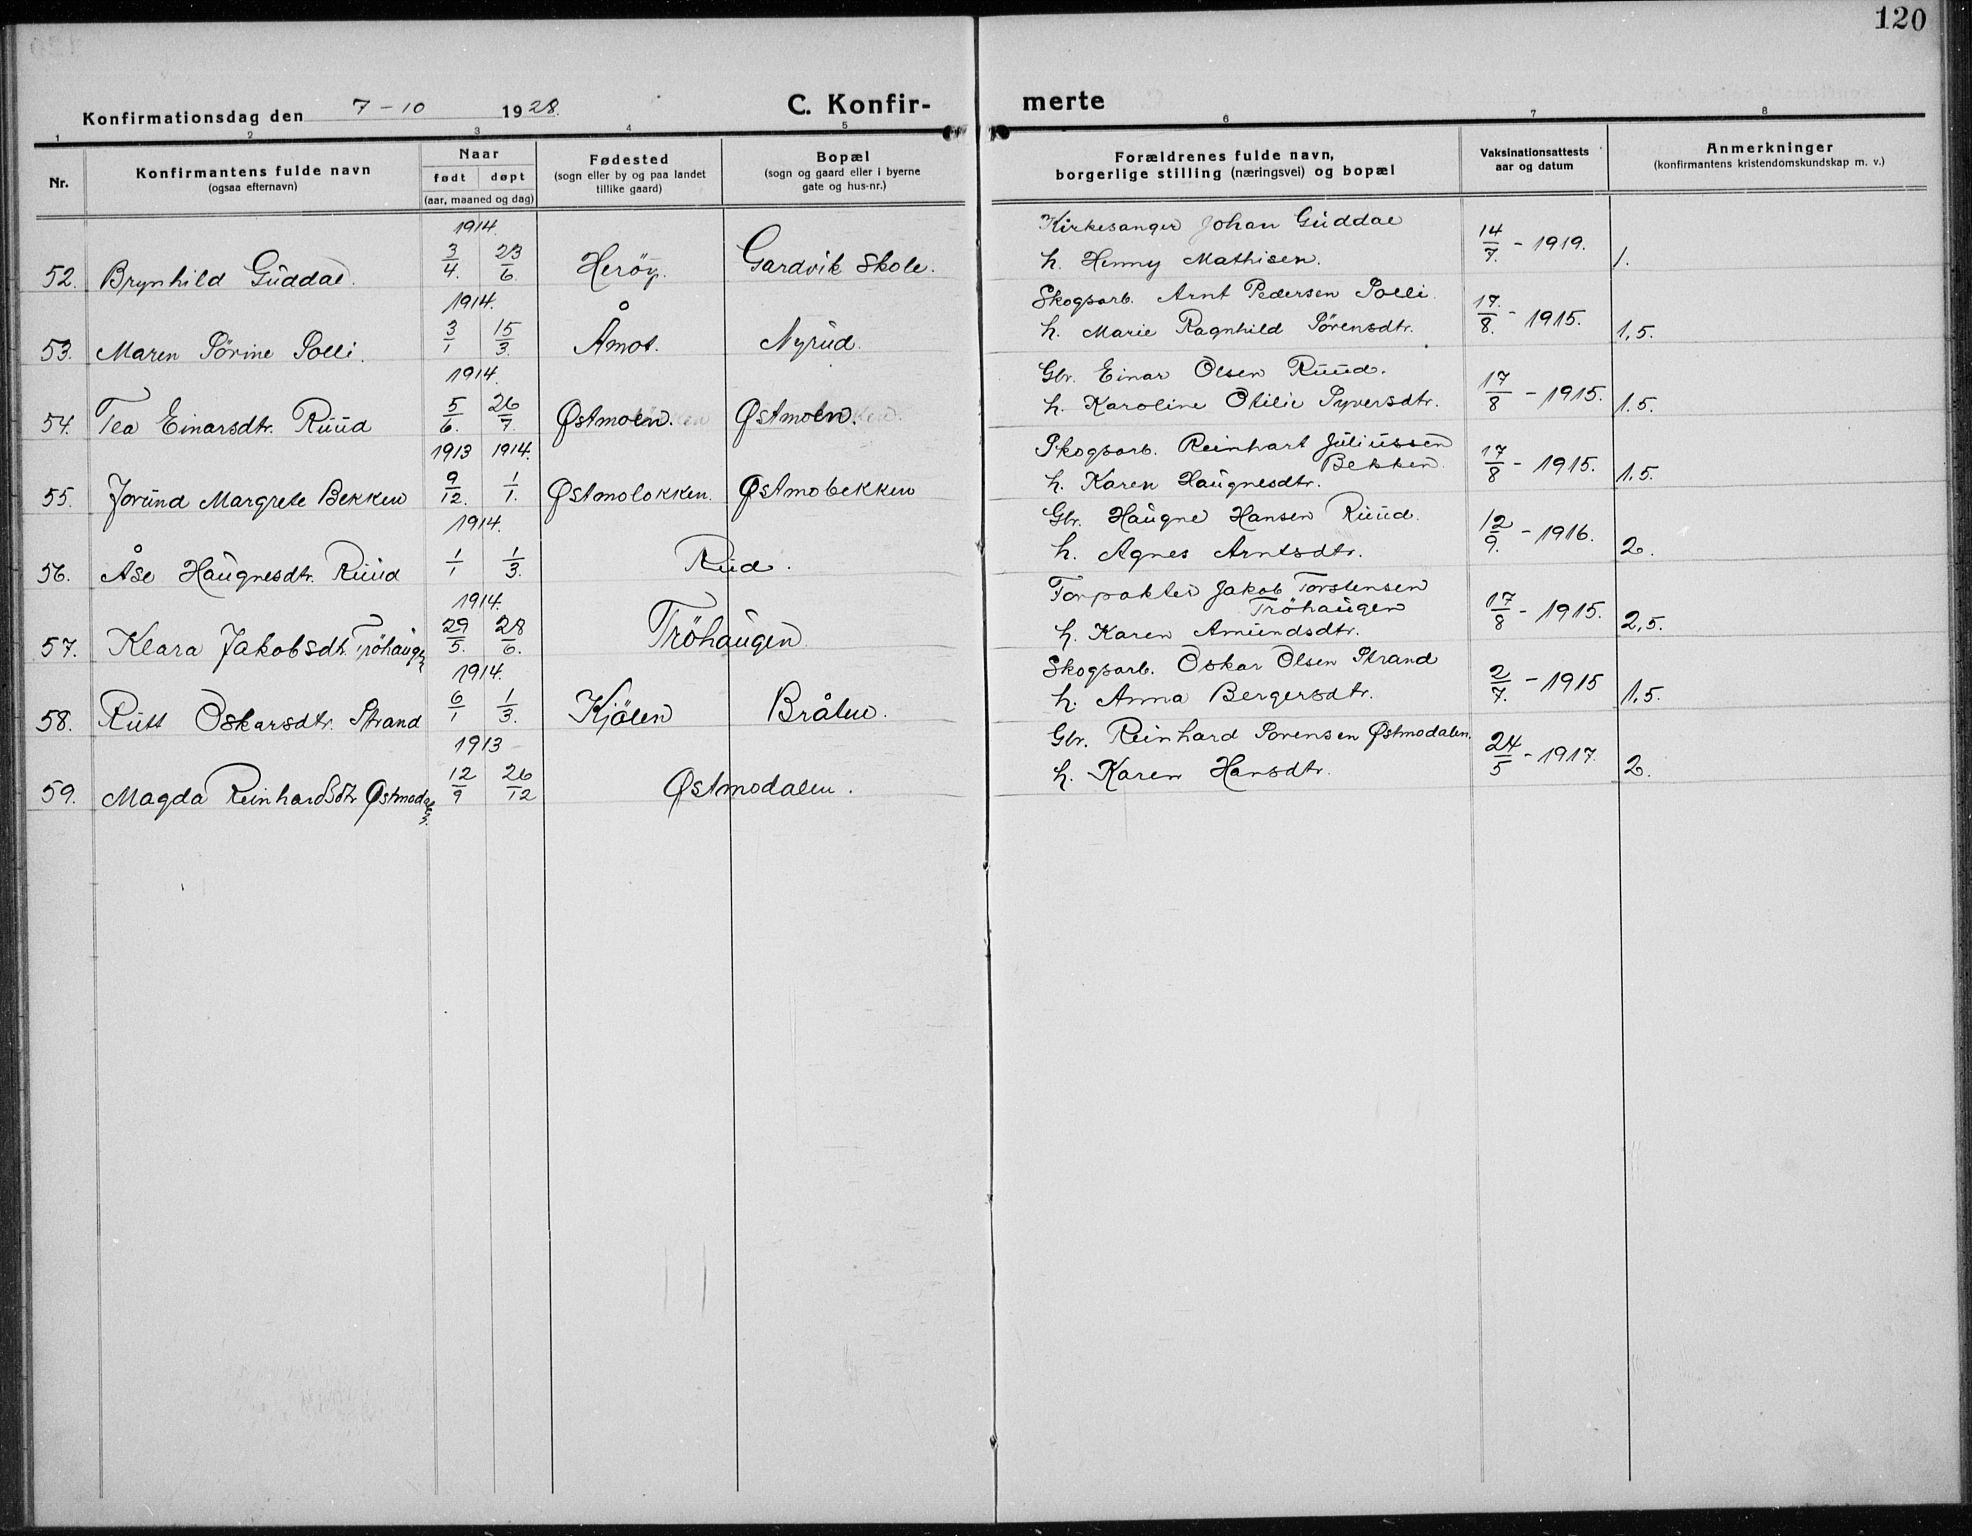 120
Konfirmationsdag den 7-10 1928. C. Konfir- merte
1 2 3 4 5 6 7 8
Nr.
Konfirmantens fulde navn
(ogsaa efternavn)
Naar
født døpt
(aar, maaned og dag)
Fødested
(sogn eller by og paa landet
tillike gaard)
Bopæl
(sogn og gaard eller i byerne
gate og hus-nr.)
Forældrenes fulde navn,
borgerlige stilling (næringsvei) og bopæl
Vaksinationsattests
aar og datum
Anmerkninger
(konfirmantens kristendomskundskap m. v.)
1914. Kirkesanger Johan Guddal
52. Brynhild Guddal. 3/4. 23/6 Herøy. Gardvik Skole. h. Henny Mathisen. 14/7. - 1919. 1.
1914. Skogsarb. Arnt Pedersen Solli.
53. Maren Sörine Solli. 3/1 15/3. Åmot. Nyrud. h. Marie Ragnhild Sörensdtr. 17./8. - 1915. 1,5.
1914. Gbr. Einar Olsen Ruud.
54. Tea Einarsdtr. Ruud 5/6. 26/7. Østmoen. Østmoen. h. Karoline Otilie Syversdtr. 17/8 - 1915. 1.5.
1913 1914. Skogsarb. Reinhart Juliussen
Bekken.
55. Jorund Margrete Bekken 9/12. 1/1. Østmolökken. Østmobekken h. Karen Haugnesdtr. 17/8 - 1915. 1.5.
1914. Gbr. Haugne Hansen Ruud.
56. Åse Haugnesdtr. Ruud 1/1 1/3. Rud. h. Agnes Arntsdtr. 12/9. - 1916. 2.
1914. Forpakter Jakob Torstensen
Tröhaugen
57. Klara Jakobsdtr. Tröhaugen 29/5. 28/6. Tröhaugen h. Karen Amundsdtr. 17/8 - 1915. 2,5.
1914. Skogsarb. Oskar Olsen Strand
58. Rutt Oskarsdtr. Strand 6/1 1/3. Kjölen Bråten. h. Anna Bergersdtr. 2/7. - 1915 1,5.
1913 Gbr. Reinhard Sorensen Østmodalen.
59. Magda Reinhardsdtr. Østmodalen. 12/9 26/12 Østmodalen. h. Karen Hansdtr. 24/5 - 1917. 2.